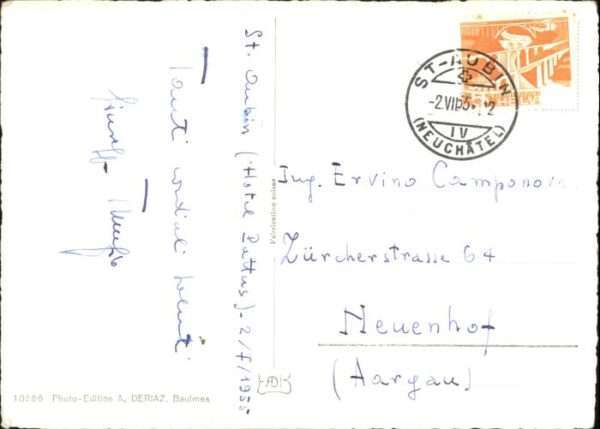 St. Aubin (Hotel Pattus) - 2/7/1953
Tanti cordiali saluti
Giuseppe
Fabrication suisse
10586 Photo-Edition A. DERIAZ, Baulmes
AD
ST-AUBIN
-2.VII.53.-12
IV
(NEUCHÂTEL)
HELVETIA
Ing. Ervino Camponovo
Zürcherstrasse 64
Neuenhof
(Aargau)